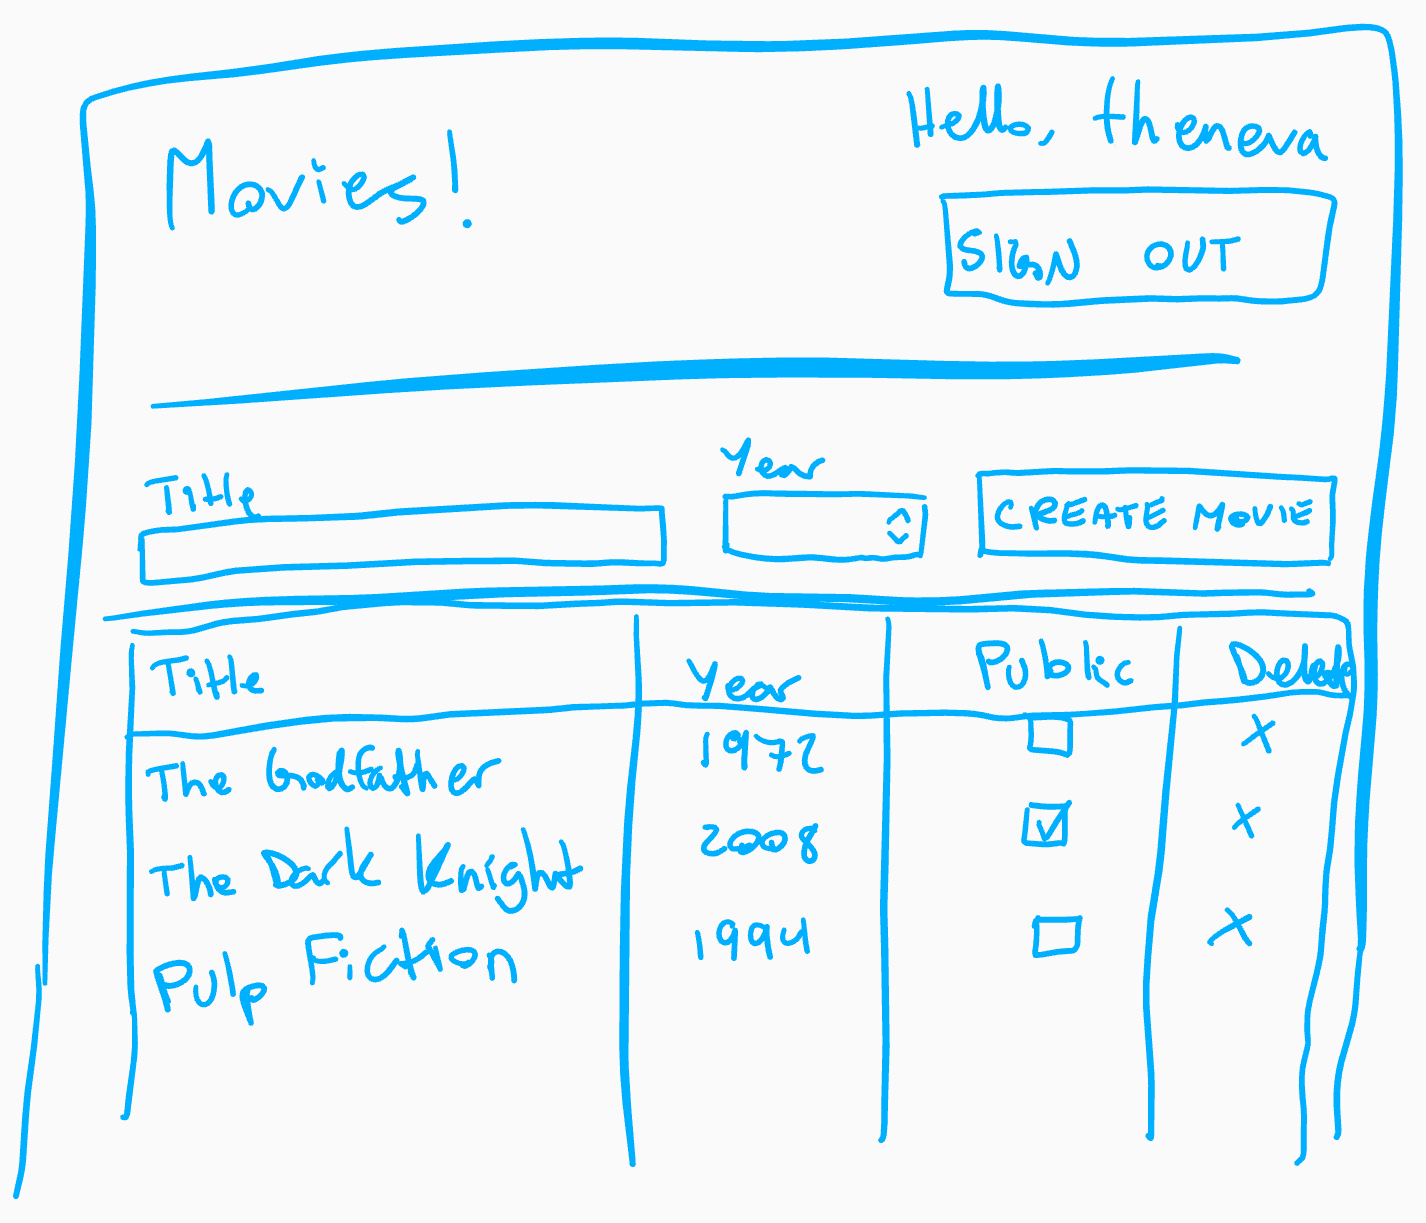 Movies!
Hello, theneva
SIGN OUT
Title
Year
CREATE MOVIE
Title Year Public Delete
The Godfather 1972 X
The Dark Knight 2008 X
Pulp Fiction 1994 X